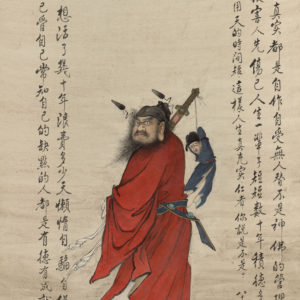 真實都是自作自受無人替不是神佛的管理
害人先傷己人生一輩子短短數十年積德
天的時間短這樣人生真充實仁者你說是不是
想活了幾十年浪費多少天懶惰自騙自
己覺自己常知自己的缺點的人都是有德有成